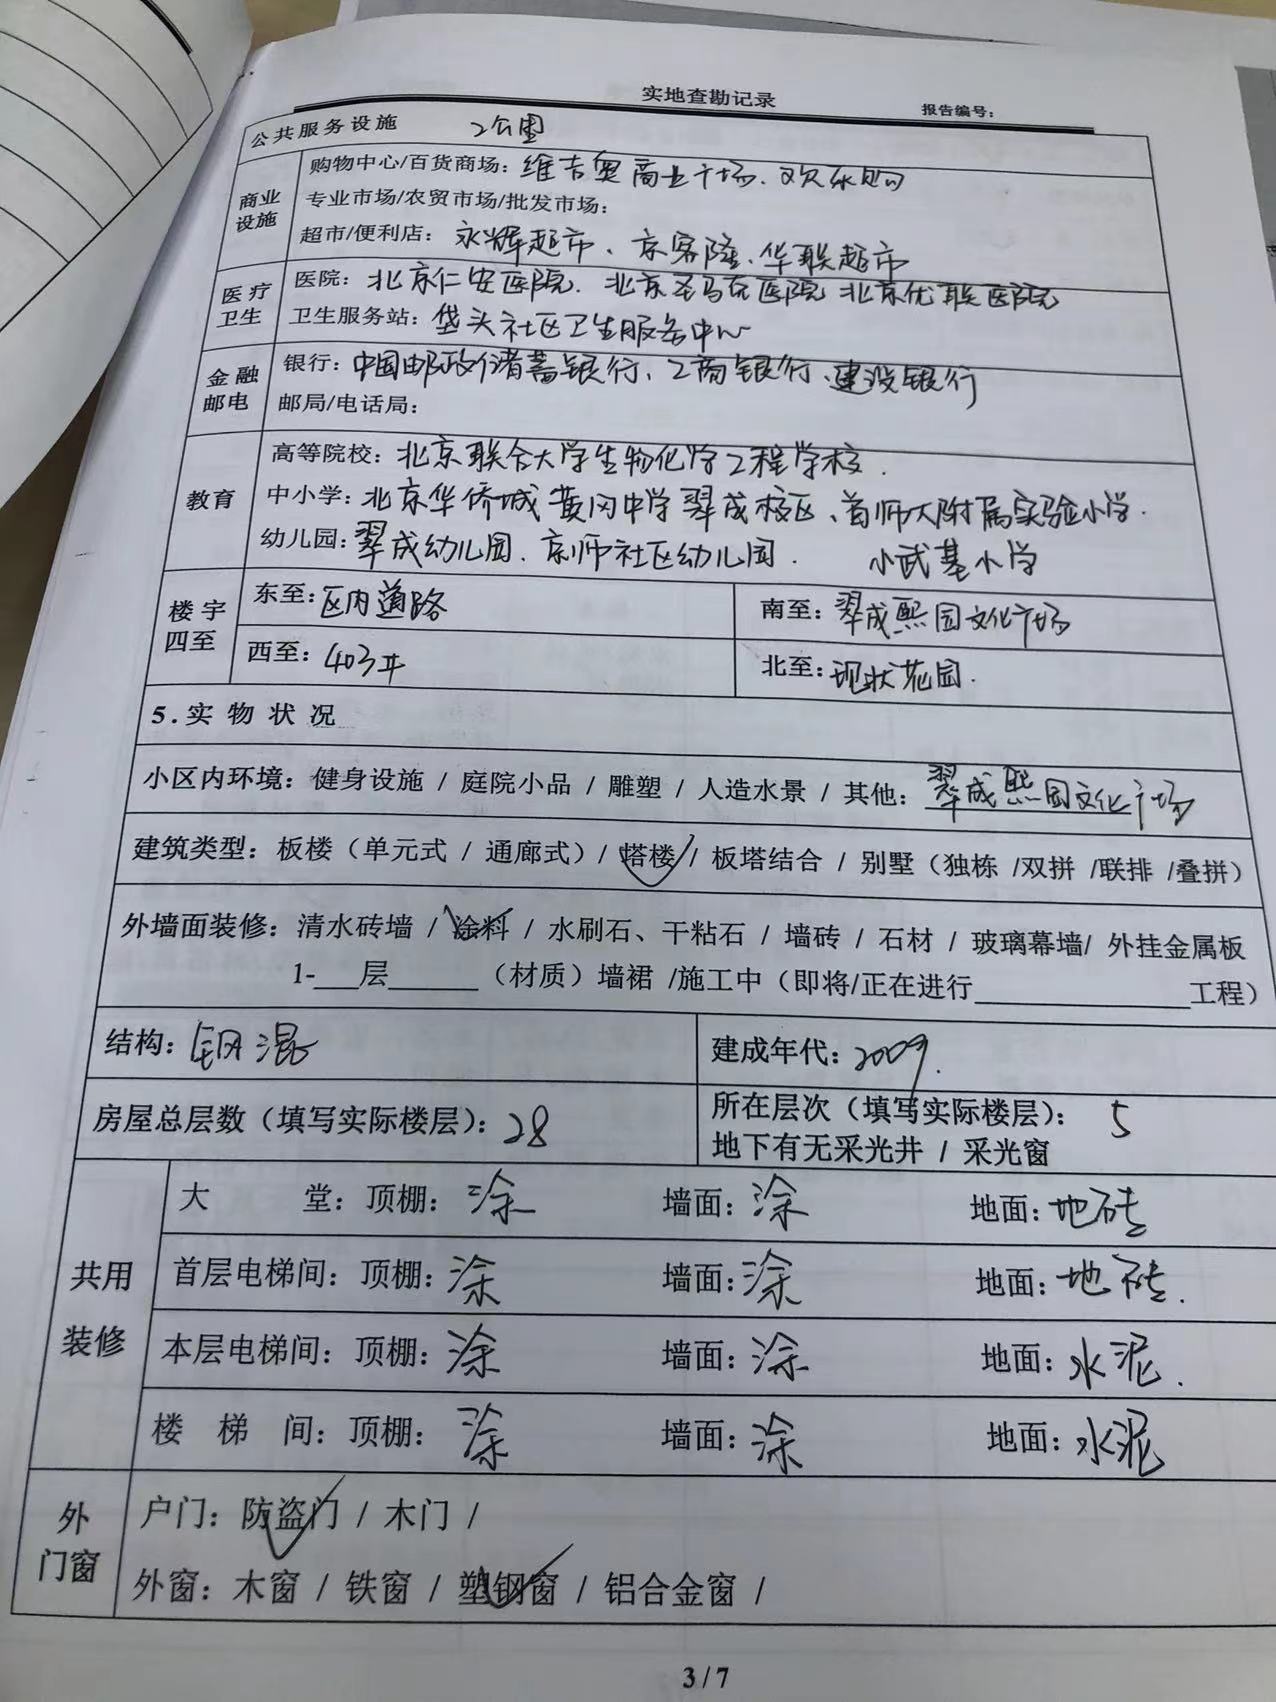 实地查勘记录
报告编号：
公共服务设施 2公里
商业设施
购物中心/百货商场：维吉奥商业广场、欢乐购
专业市场/农贸市场/批发市场：
超市/便利店：永辉超市、京客隆、华联超市
医疗卫生
医院：北京仁安医院、北京圣马克医院 北京优联医院
卫生服务站：垡头社区卫生服务中心
金融邮电
银行：中国邮政储蓄银行、工商银行、建设银行
邮局/电话局：
教育
高等院校：北京联合大学生物化学工程学校.
中小学：北京华侨城黄冈中学翠成校区、首师大附属实验小学.
小武基小学
幼儿园：翠成幼儿园、京师社区幼儿园.
楼宇四至
东至：区内道路 南至：翠成熙园文化广场
西至：403# 北至：现状花园.
5.实物状况
小区内环境：健身设施 / 庭院小品 / 雕塑 / 人造水景 / 其他：翠成熙园文化广场
建筑类型：板楼（单元式 / 通廊式）/ 塔楼 / 板塔结合 / 别墅（独栋 /双拼 /联排 /叠拼）
外墙面装修：清水砖墙 / 涂料 / 水刷石、干粘石 / 墙砖 / 石材 / 玻璃幕墙/ 外挂金属板
1-___层______（材质）墙裙 /施工中（即将/正在进行______________工程）
结构：钢混 建成年代：2009.
房屋总层数（填写实际楼层）：28 所在层次（填写实际楼层）： 5
地下有无采光井 / 采光窗
共用装修
大堂：顶棚：涂 墙面：涂 地面：地砖
首层电梯间：顶棚：涂 墙面：涂 地面：地砖.
本层电梯间：顶棚：涂 墙面：涂 地面：水泥.
楼梯间：顶棚：涂 墙面：涂 地面：水泥
外门窗
户门：防盗门 / 木门 /
外窗：木窗 / 铁窗 / 塑钢窗 / 铝合金窗 /
3 / 7